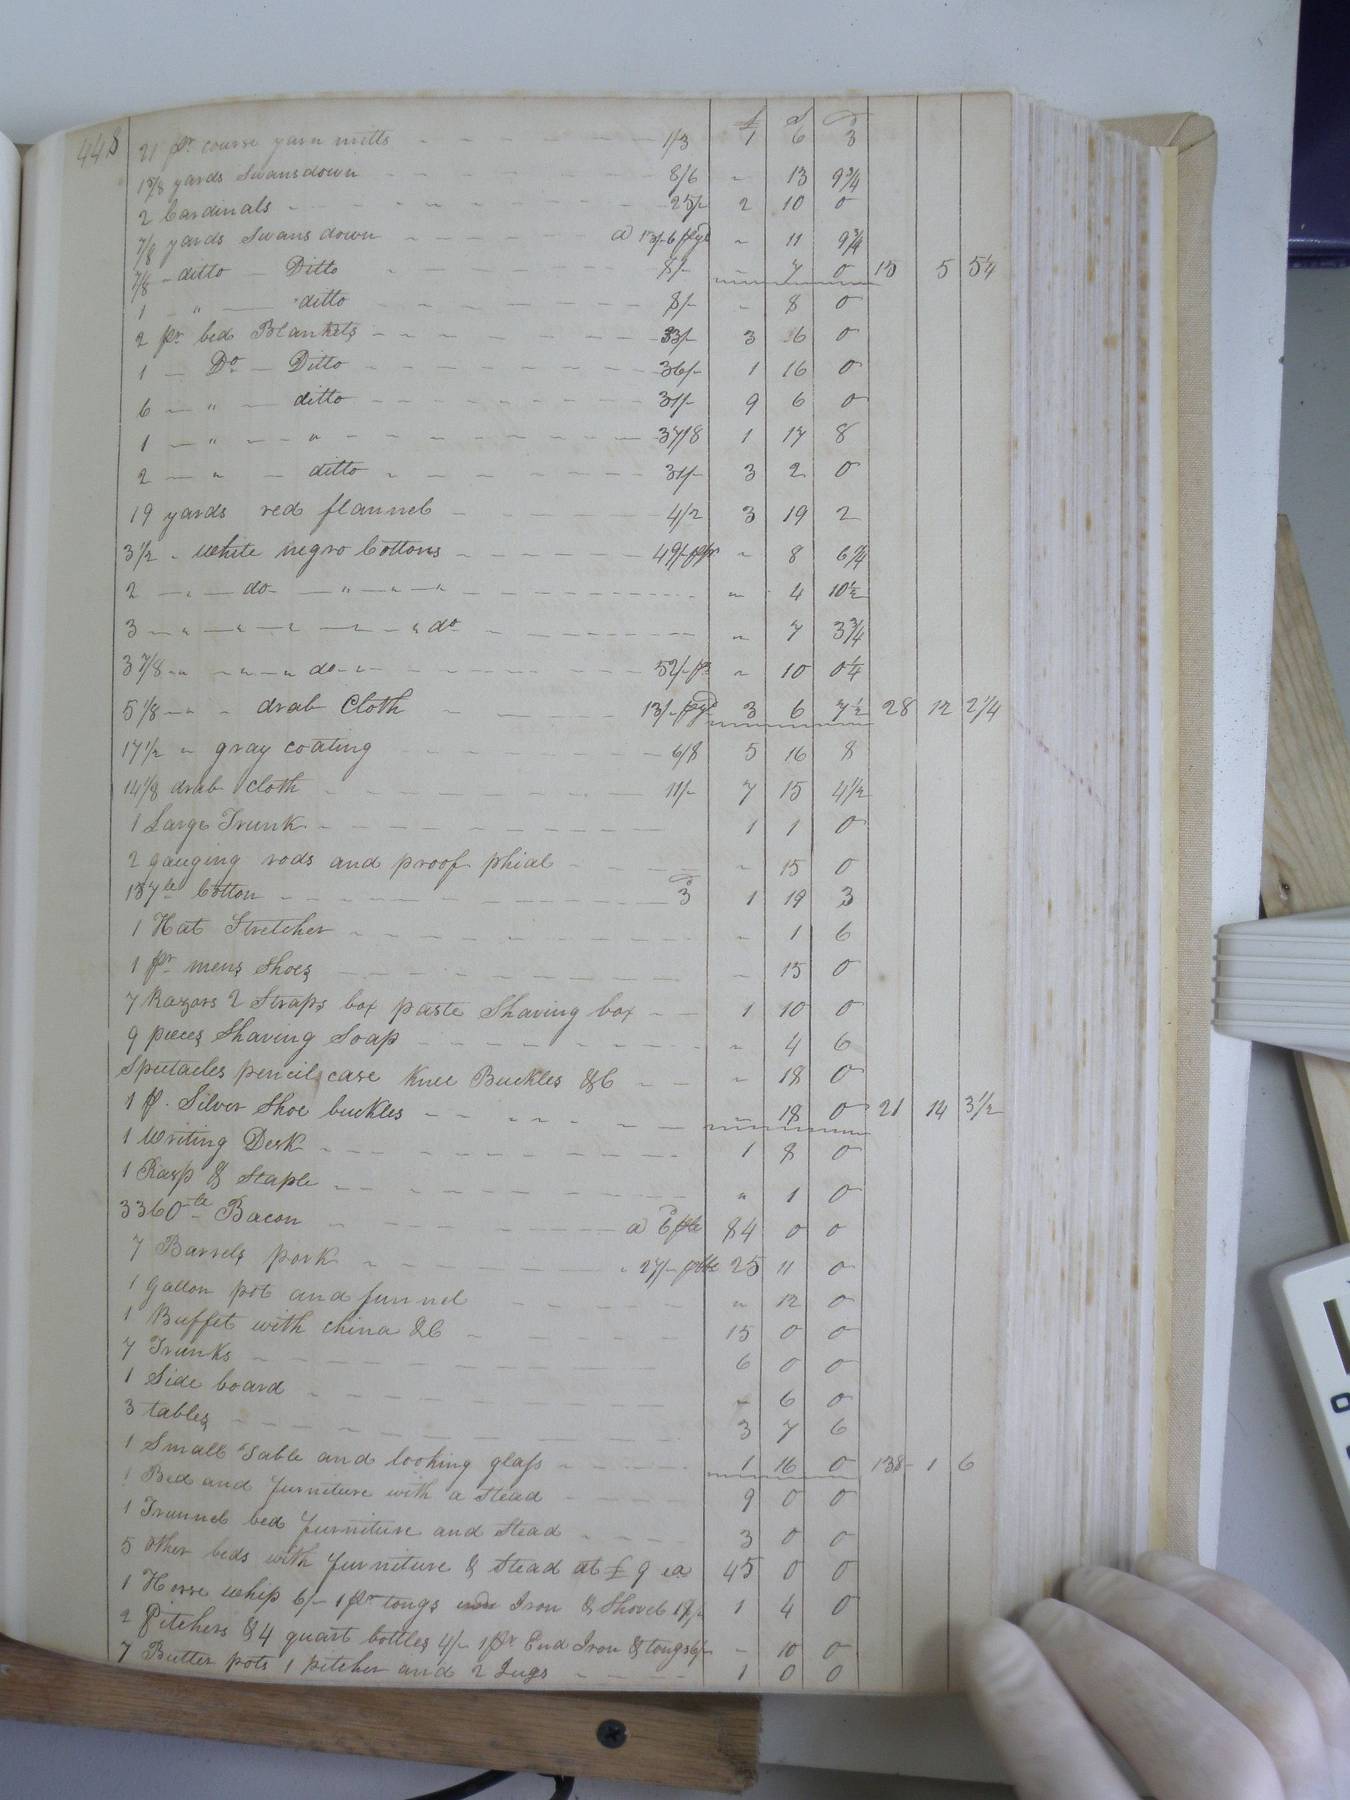 448
£ s d
21 pr course yarn mitts - - - 1/3 1 6 3
1 5/8 yards Swansdown - - - 8/6 " 13 9 3/4
2 Cardinals - - - 25/- 2 10 0
7/8 yards Swans down - - - @ 13/6 pr yd " 11 9 3/4
7/8 - ditto - Ditto - - - 8/- " 7 0 15 5 5 1/4
1 - " - ditto - - - 8/- " 8 0
2 pr bed Blankets - - - 33/- 3 6 0
1 - Do - Ditto - - - 36/- 1 16 0
6 - " - ditto - - - 31/- 9 6 0
1 - " - " - - - 37/8 1 17 8
2 - " - ditto - - - 31/- 3 2 0
19 yards red flannel - - - 4/2 3 19 2
3 1/2 " white negro Cottons - - - 49/- " 8 6 3/4
2 - " - do - " - " - " - - - " 4 10 1/2
3 - " - " - " - " do - - - " 7 3 3/4
3 7/8 - " - " - " do - " - - - 52/- ps " 10 0 1/4
5 1/8 - " - drab Cloth - - - 13/- pr yd 3 6 7 1/2 28 12 2 1/4
17 1/2 " gray coating - - - 6/8 5 16 8
14 1/8 drab Cloth - - - 11/- 7 15 4 1/2
1 Large Trunk - - - 1 1 0
2 gauging rods and proof phial - - - " 15 0
157 lb Cotton - - - 3d 1 19 3
1 Hat Stretcher - - - " 1 6
1 pr mens Shoes - - - " 15 0
7 Razors 2 Straps box paste Shaving box - - 1 10 0
9 pieces Shaving Soap - - - " 4 6
Spectacles pencil case Knee Buckles &C - - " 18 0
1 p. Silver Shoe buckles - - - " 18 0 21 14 3 1/2
1 Writing Desk - - - 1 8 0
1 Hasp & Staple - - - " 1 0
3360 lb Bacon - - - @ 6d plb 84 0 0
7 Barrels pork - - - 27/- 25 11 0
1 Gallon pot and funnel - - - " 12 0
1 Buffet with china &C - - - 15 0 0
7 Trunks - - - 6 0 0
1 Side board - - - " 6 0
3 tables - - - 3 7 6
1 Small Table and looking glass - - - 1 16 0 138 1 6
1 Bed and furniture with a Stead - - - 9 0 0
1 Trunnel bed furniture and Stead - - - 3 0 0
5 other beds with furniture & Stead at £9 ea 45 0 0
1 Horse whip 6/- 1 pr tongs Iron & Shovel 18/- 1 4 0
2 Pitchers & 4 quart bottles 4/- 1 pr End Iron & tongs 6/- - 10 0
7 Butter pots 1 pitcher and 2 Jugs - - - 1 0 0